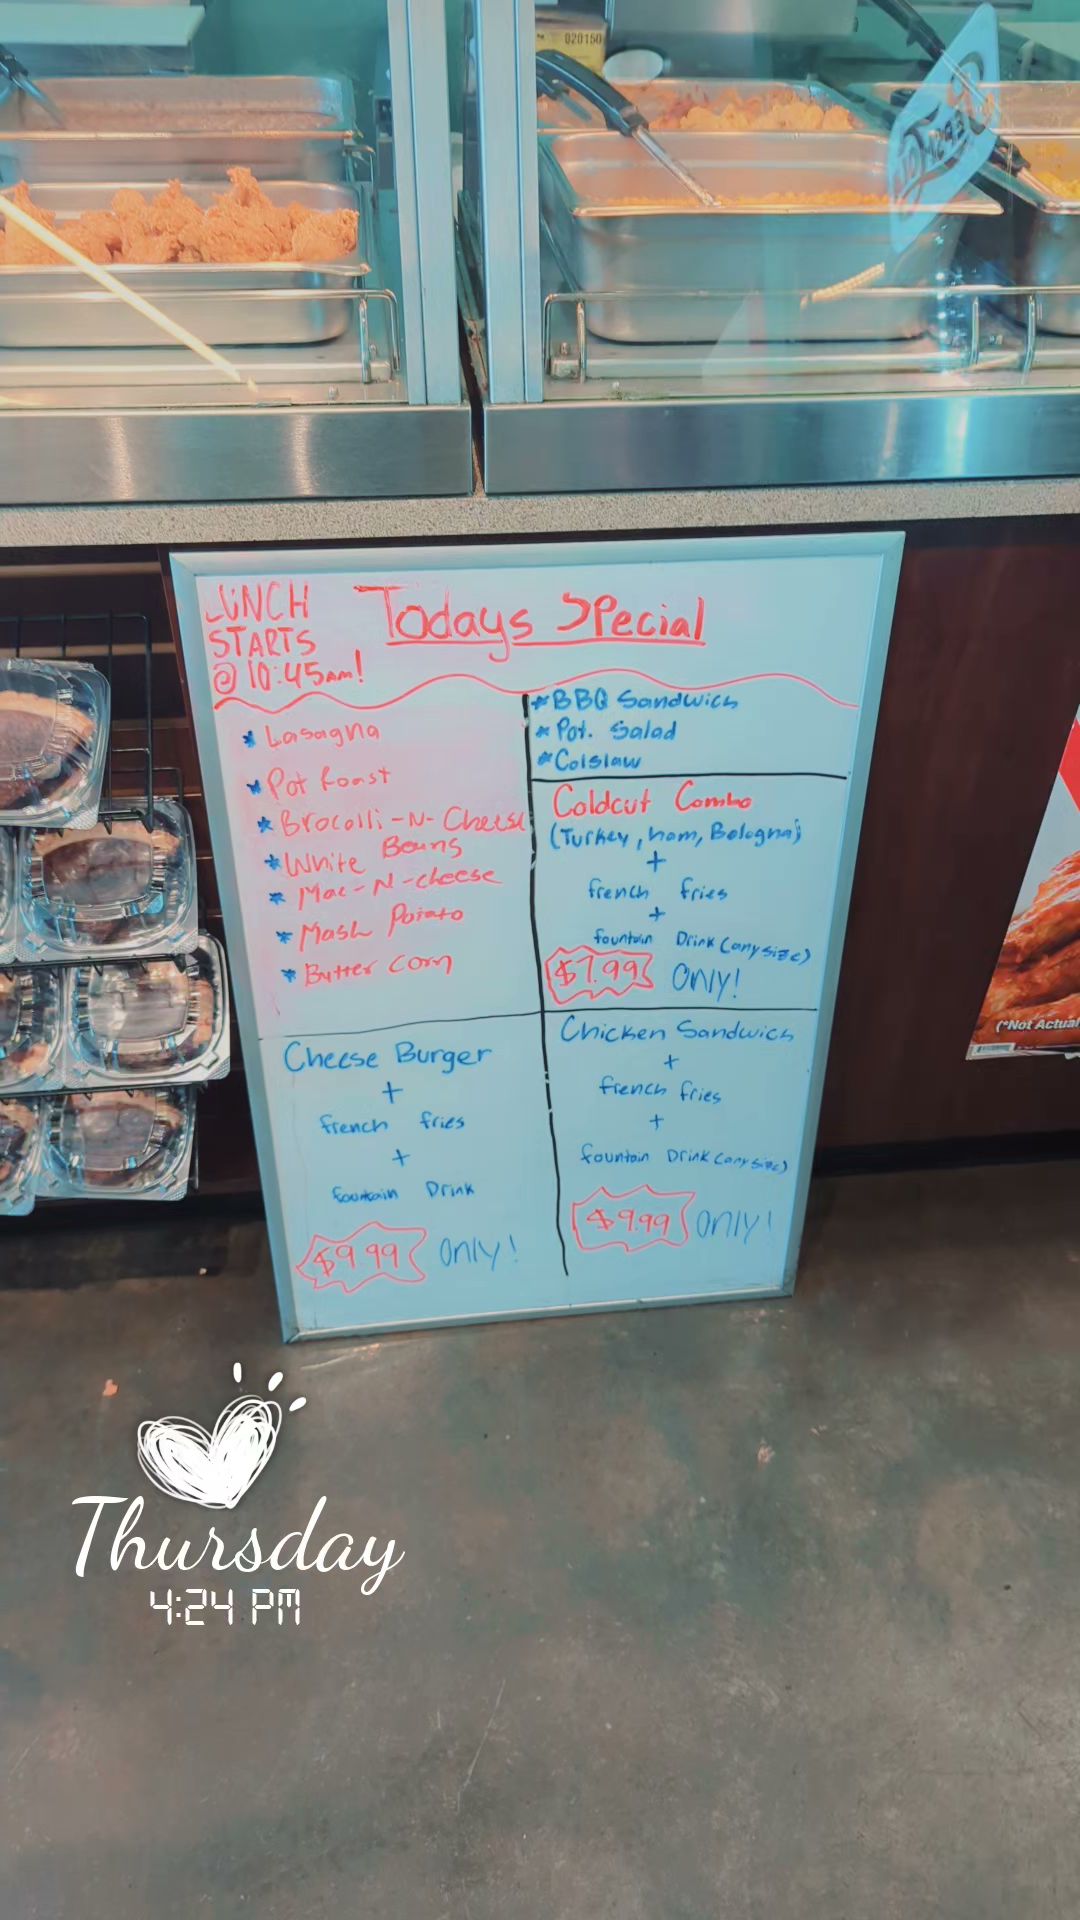 020150
LUNCH
STARTS
@ 10:45AM!
Todays Special
* Lasagna
* Pot Roast
* Brocolli-N-Cheese
* White Beans
* Mac-N-cheese
* Mash Potato
* Butter corn
* BBQ Sandwich
* Pot. Salad
* Colslaw
Coldcut Combo
(Turkey, ham, Bologna)
+
french fries
+
fountain Drink (any size)
$7.99 Only!
Cheese Burger
+
french fries
+
fountain Drink
$9.99 Only!
Chicken Sandwich
+
french fries
+
fountain Drink (any size)
$9.99 Only!
(*Not Actual
Thursday
4:24 PM